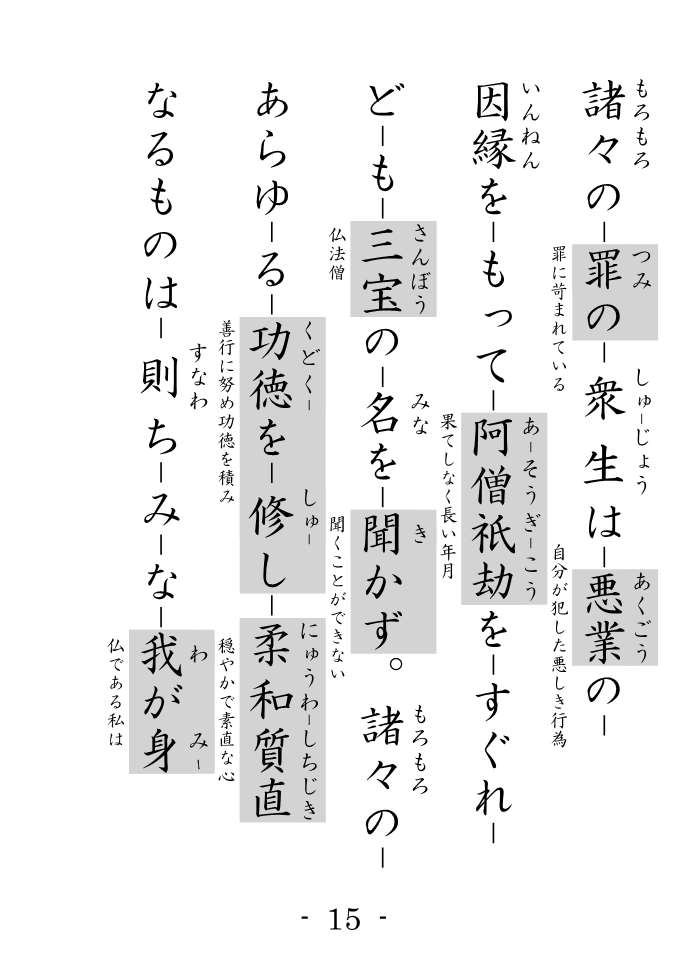 もろもろ
諸々の－罪の－衆生は－悪業の－
つみ
しゅ－じょう
あくごう
罪に苛まれている
自分が犯した悪しき行為
いんねん
因縁を－もって－阿僧祇劫を－すぐれ－
あ－そうぎ－こう
果てしなく長い年月
ど－も－三宝の－名を－聞かず。諸々の－
さんぼう
みな
き
もろもろ
仏法僧
聞くことができない
あらゆ－る－功徳を－修し－柔和質直
くどく－
しゅ－
にゅうわ－しちじき
善行に努め功徳を積み
穏やかで素直な心
なるものは－則ち－み－な－我が身
すなわ
わ
み－
仏である私は
- 15 -